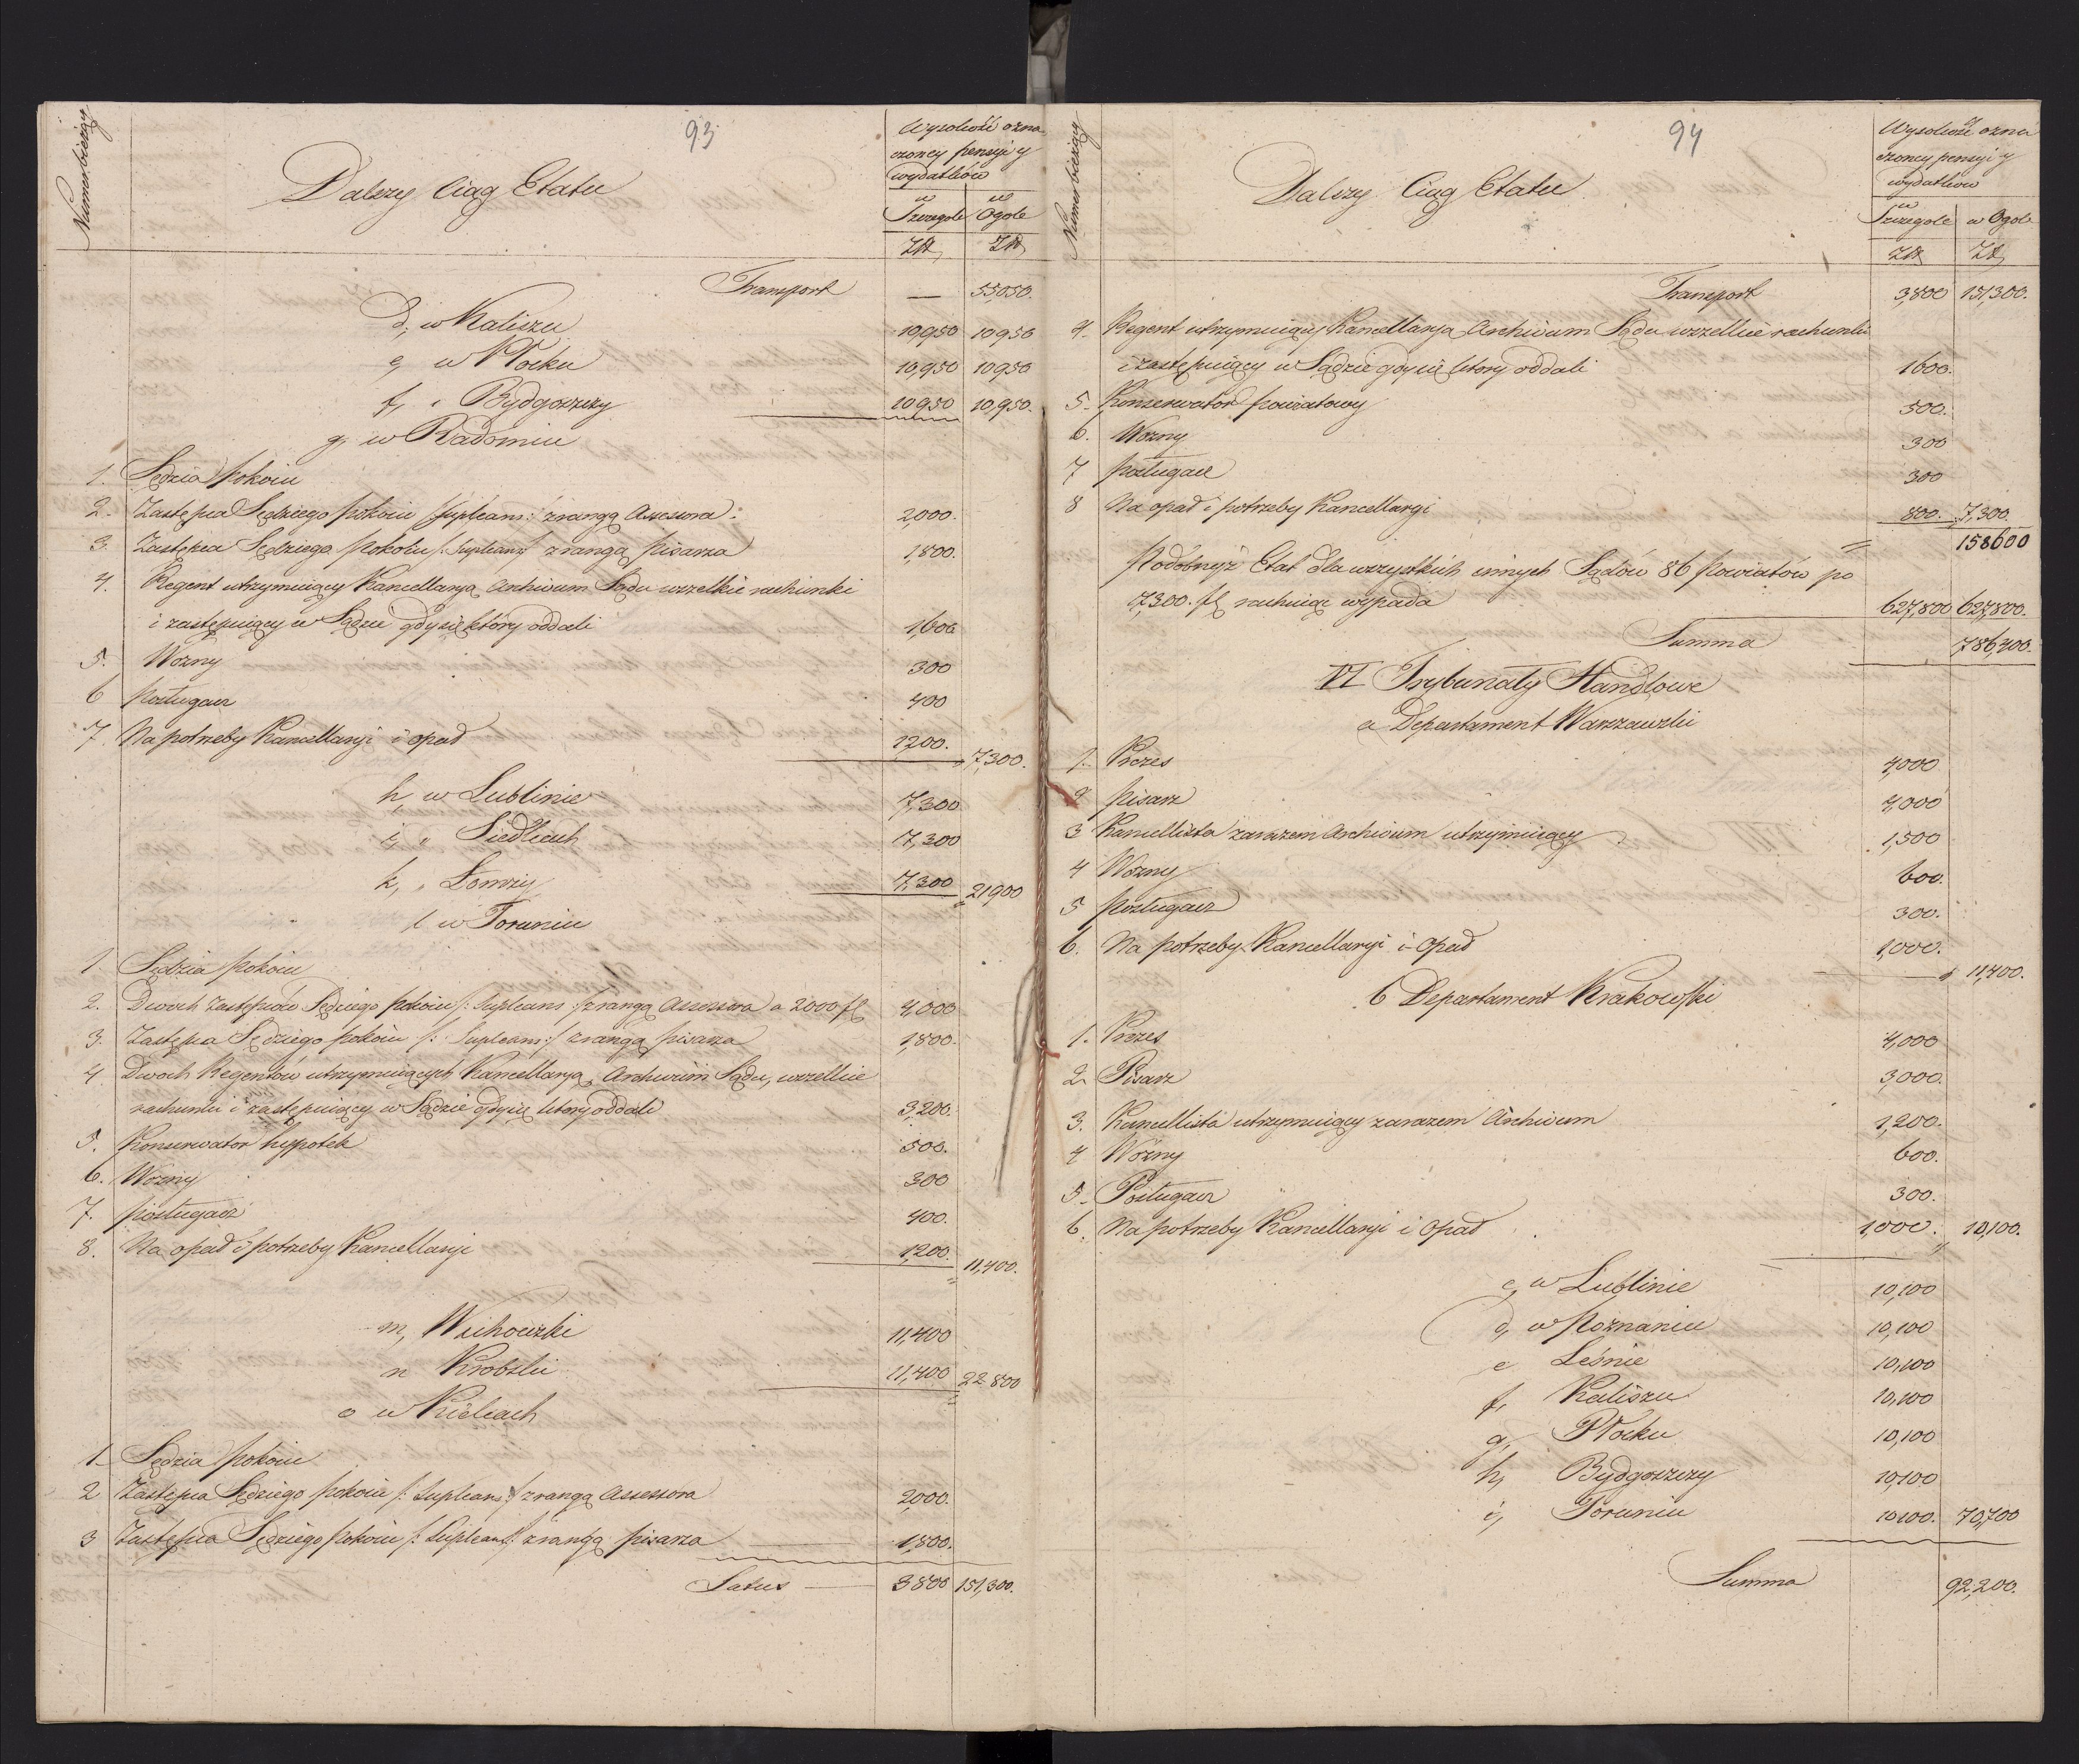 93
Numer bieżący
Dalszy Ciąg Etatu
Wysokość ozna
czoney pensyi y
wydatków
w Szczegole
w Ogole
Zł
Zł
Transport — 55050.
d, w Kaliszu 10,950 10950
e, w Płocku 10,950 10950
f, " Bydgoszczy 10950 10,950.
g, w Radomiu
1. Sędzia pokoiu
2. Zastępca Sędziego pokoiu /:supleans:/ z rangą Assessora. 2,000.
3. Zastępca Sędziego pokoiu /:supleans:/ z rangą pisarza 1,800.
4. Regent utrzymuiący Kancellarya, Archivum Sądu wszelkie rachunki
i zastępuiący w Sądzie gdy się który oddali 1,600
5. Wozny 300
6 posługacz 400
7. Na potrzeby Kancellaryi i opad 1200. 7,300.
h, w Lublinie 7,300
i, " Siedlcach 7,300
k, " Łomży 7,300 21900
l w Toruniu
1. Sędzia pokoiu
2. Dwoch Zastępców Sędziego pokoiu /:Supleans:/ z rangą Assessora a 2000 fl 4,000
3. Zastępca Sędziego pokoiu /:Supleans:/ z rangą pisarza 1,800.
4 Dwoch Regentów utrzymuiących Kancellarya, Archivum Sądu, wszelkie
rachunki i zastępuiący w Sądzie gdy się który oddali 3,200.
5. Konserwator hypotek 500.
6. Wozny 300
7. posługacz 400.
8. Na opad i potrzeby Kancellaryi 1,200. 11,400.
m, 11,400
n Krobski 11,400 22800
o w Kielcach
1. Sędzia pokoiu
2 Zastępca Sędziego pokoiu /:Supleans:/ z rangą Assessora 2,000.
3 Zastępca Sędziego pokoiu /:Supleans:/ z rangą pisarza 1,800.
Latus — 3800 151,300.
94
Numer bieżący
Dalszy Ciąg Etatu
Wysokość ozna
czoney pensyi y
wydatków
w Szczegole
w Ogole
Zł
Zł
Transport 3,800 151,300.
4. Regent utrzymuiący Kancellarya Archivum Sądu wszelkie rachunki
i zastępuiący w Sądzie gdy się który oddali 1600.
5. Konserwator powiatowy 500.
6. Wozny 300
7 posługacz 300
8 Na opad i potrzeby Kancellaryi 800. 7,300.
158600
Podobnyż Etat dla wszystkich innych Sądów 86 Powiatów po
7,300. fl rachuiąc wypada 627,800 627,800.
Summa 786,400.
VI Trybunały Handlowe
a Departament Warszawski
1. Prezes 4,000
2 pisarz 4,000
3 Kancellista zarazem Archivum utrzymuiący 1,500
4 Wozny 600.
5 posługacz 300.
6. Na potrzeby Kancellaryi i Opad 1,000. 11,400.
b Departament Krakowski
1. Prezes 4,000
2. Pisarz 3,000.
3. Kancellista utrzymuiący zarazem Archivum 1,200.
4 Wozny 600.
5. Posługacz 300.
6. Na potrzeby Kancellaryi i Opad 1,000. 10,100.
c, w Lublinie 10,100
d, w Poznaniu 10,100
e Lesnie 10,100
f, Kaliszu 10,100
g, Płocku 10,100
h, Bydgoszczy 10,100
i, Toruniu 10100. 70,700
Summa 92,200.